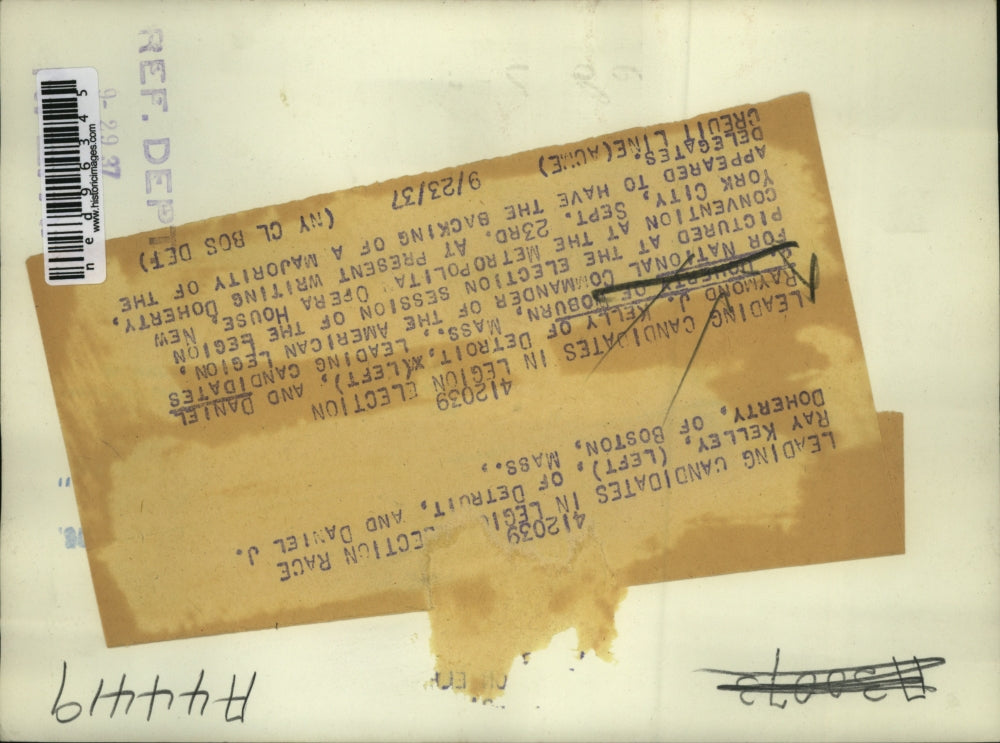 A30073
A44419
412039
LEADING CANDIDATES IN LEGI ECTION RACE
RAY KELLEY, (LEFT), OF DETROIT, AND DANIEL J.
DOHERTY, OF BOSTON, MASS.,
412039
LEADING CANDIDATES IN LEGION ELECTION
RAYMOND J. KELLY OF DETROIT, (LEFT), AND DANIEL
J. DOHERTY OF WOBURN, MASS. LEADING CANDIDATES
FOR NATIONAL COMMANDER OF THE AMERICAN LEGION,
PICTURED AT THE ELECTION SESSION OF THE LEGION
CONVENTION AT THE METROPOLITAN OPERA HOUSE, NEW
YORK CITY, SEPT. 23RD. AT PRESENT WRITING DOHERTY,
APPEARED TO HAVE THE BACKING OF A MAJORITY OF THE
DELEGATES.
CREDIT LINE(ACME) 9/23/37 (NY CL BOS DEF)
REF. DEPT
9-29-37
ned96345
www.historicimages.com